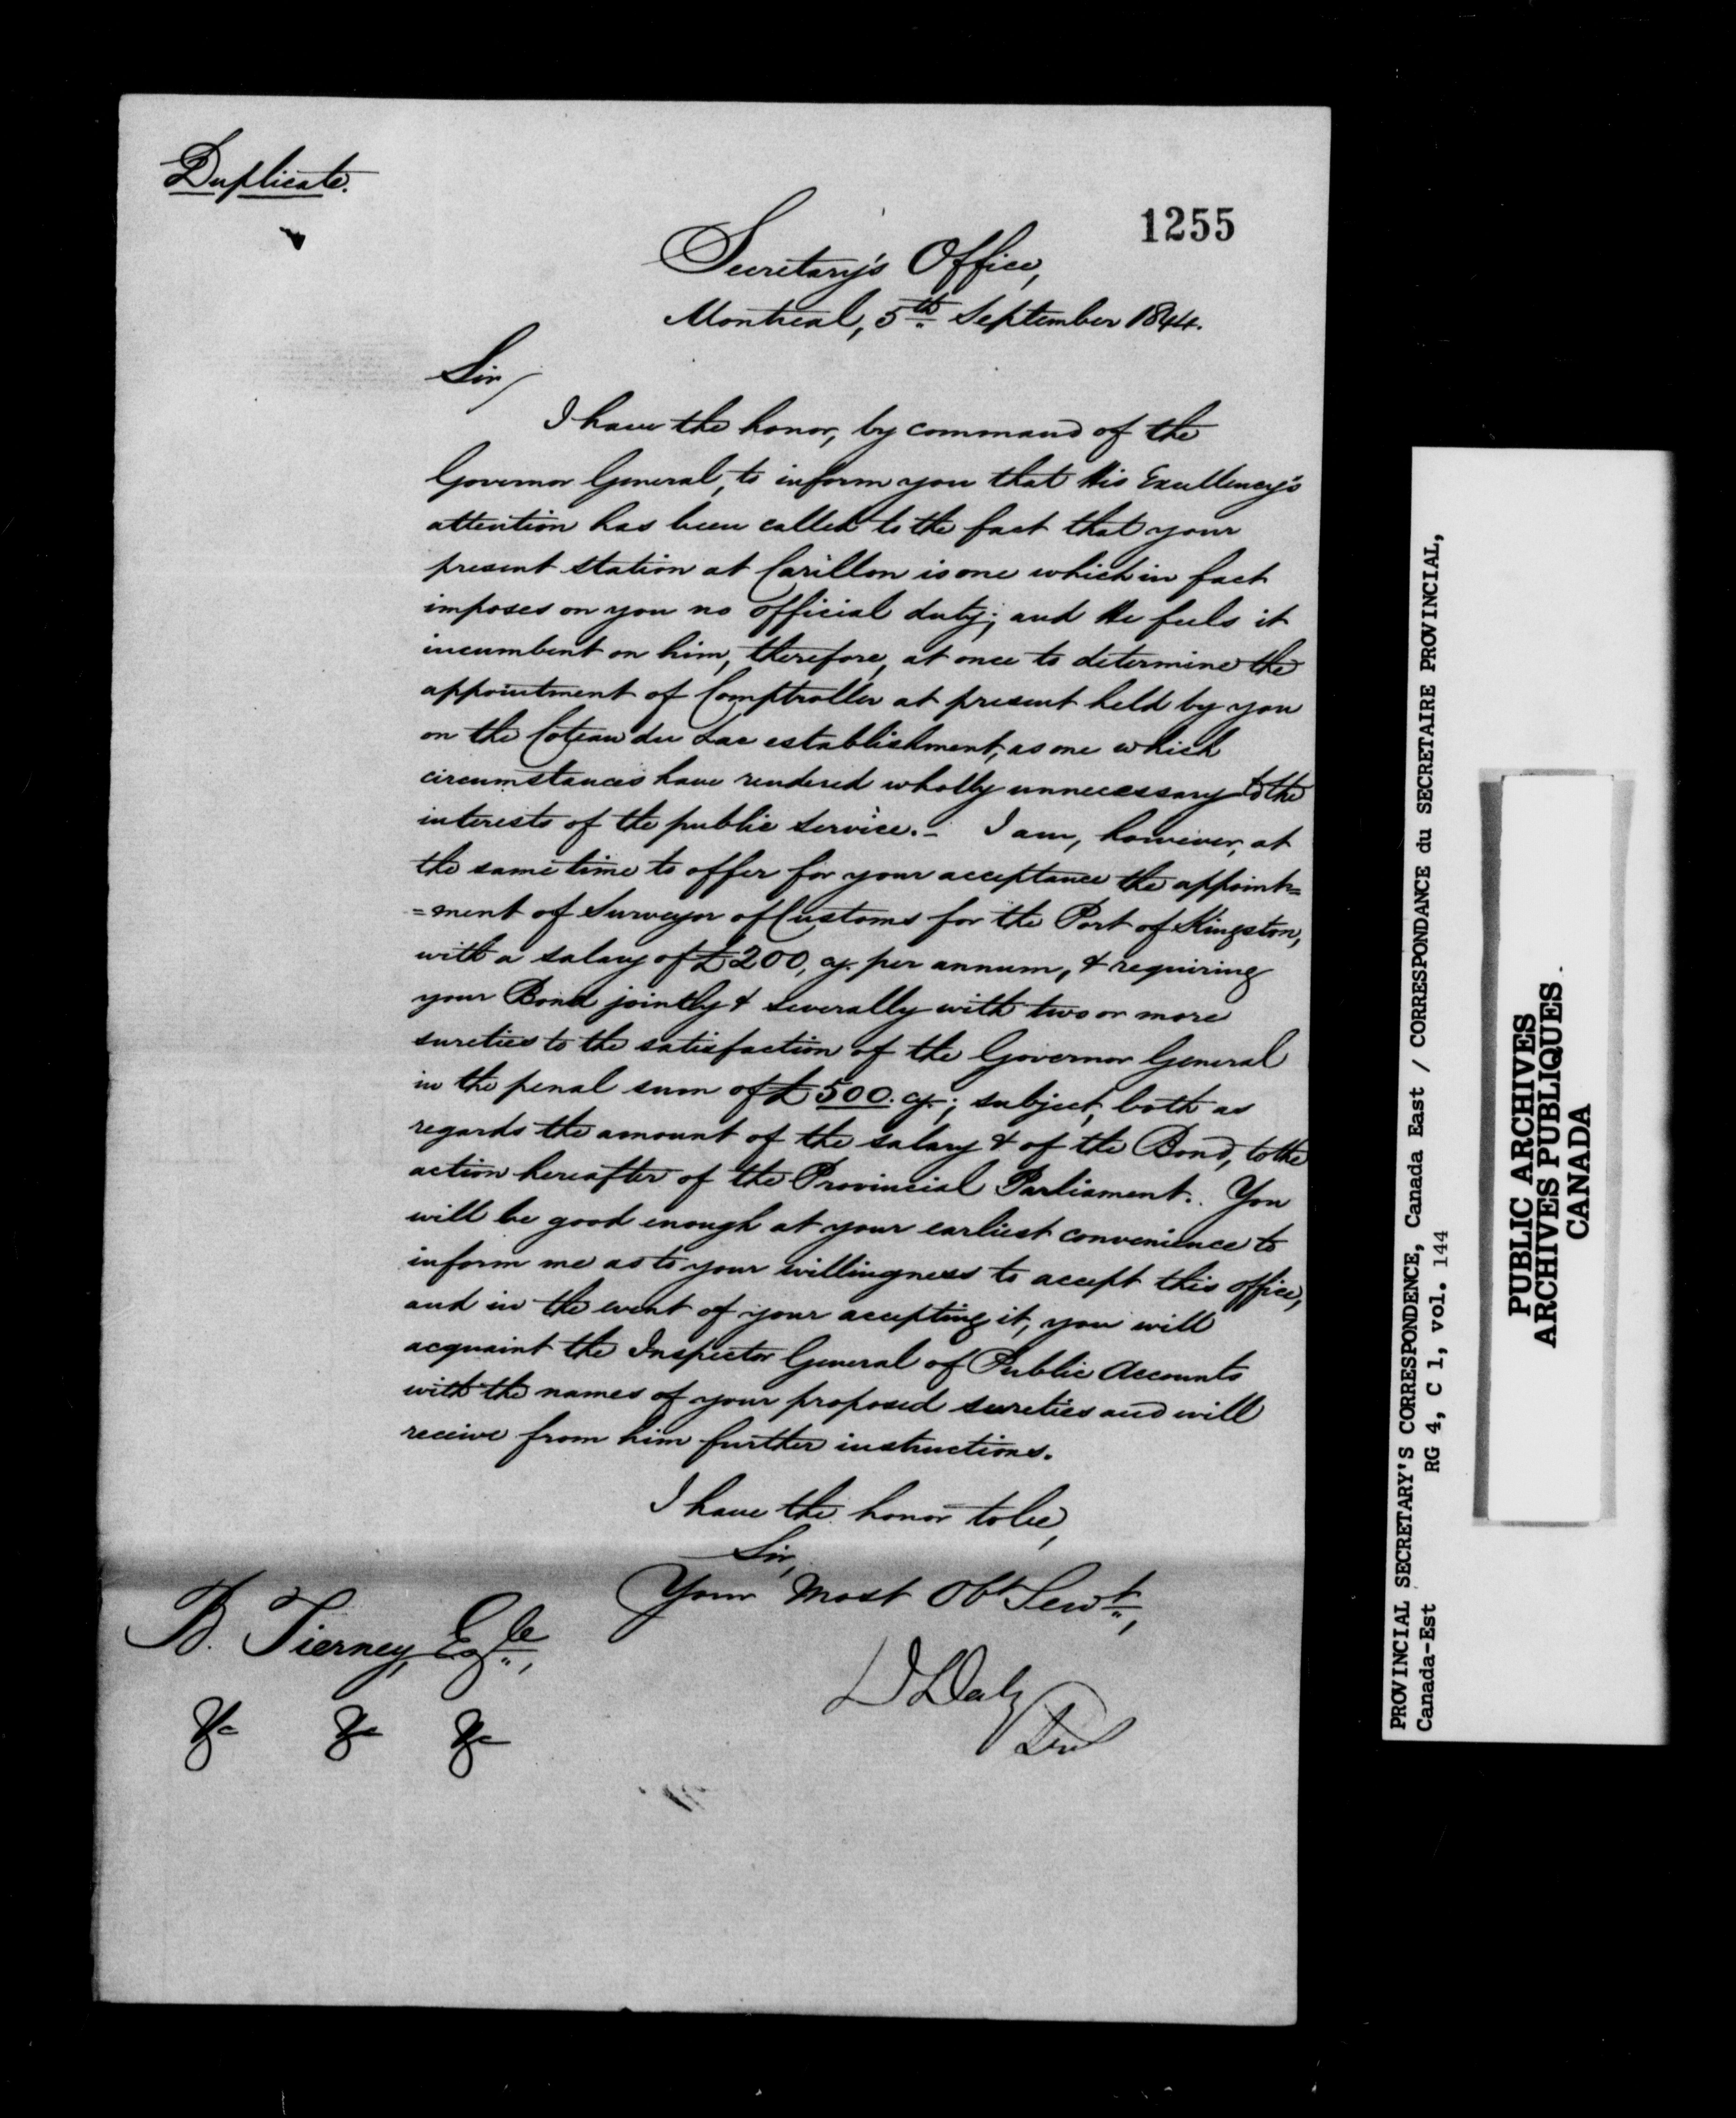 Duplicate.
1255
Secretary's Office,
Montreal, 5th September 1844.
Sir,
I have the honor, by command of the
Governor General, to inform you that His Excellency's
attention has been called to the fact that your
present station at Carillon is one which in fact
imposes on you no official duty; and He feels it
incumbent on him, therefore, at once to determine the
appointment of Comptroller at present held by you
on the Coteau du Lac establishment, as one which
circumstances have rendered wholly unnecessary to the
interests of the public service. - I am, however, at
the same time to offer for your acceptance the appoint=
=ment of Surveyor of Customs for the Port of Kingston,
with a salary of £200, cy. per annum, & requiring
your Bond jointly & severally with two or more
sureties to the satisfaction of the Governor General
in the penal sum of £500. cy.; subject, both as
regards the amount of the salary & of the Bond, to the
action hereafter of the Provincial Parliament. You
will be good enough at your earliest convenience to
inform me as to your willingness to accept this office,
and in the event of your accepting it, you will
acquaint the Inspector General of Public Accounts
with the names of your proposed sureties and will
receive from him further instructions.
I have the honor to be,
Sir,
Your Most Obt Servt,
B. Tierney, Esqre,
&c &c &c
D Daly
PROVINCIAL SECRETARY'S CORRESPONDENCE, Canada East / CORRESPONDANCE du SECRETAIRE PROVINCIAL,
Canada-Est RG 4, C 1, vol. 144
PUBLIC ARCHIVES
ARCHIVES PUBLIQUES
CANADA